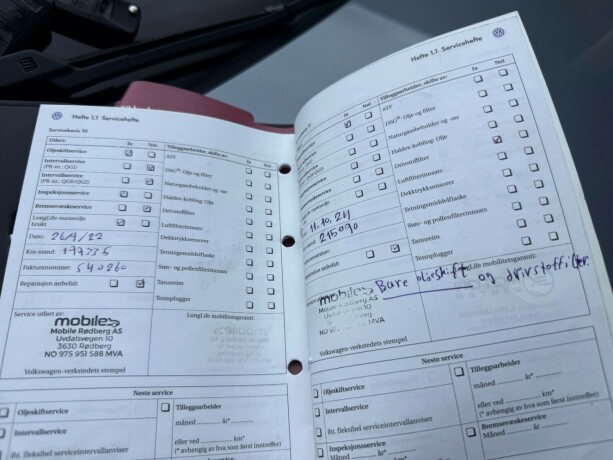 Hefte 1.1 Servicehefte
Servicebevis 10
Utført: Ja Nei
Oljeskiftservice
Intervallservice
(PR-nr.: QG1)
Intervallservice
(PR-nr.: QG0/QG2)
Inspeksjonsservice
Bremsevæskeservice
LongLife-motorolje
brukt
Dato: 26/9/22
Km-stand: 197335
Fakturanummer: 540260
Reparasjon anbefalt
Tilleggsarbeider, skifte av: Ja Nei
ATF
DSG®: Olje og filter
Naturgassbeholder og -rør
Haldex-kobling: Olje
Drivstoffilter
Luftfilterinnsats
Dekktrykksensorer
Tetningsmiddelflaske
Støv- og pollenfilterinnsats
Tannreim
Tennplugger
Service utført av:
mobile
Mobile Rødberg AS
Uvdalsvegen 10
3630 Rødberg
NO 975 951 588 MVA
Volkswagen-verkstedets stempel
LongLife mobilitetsgaranti:
Neste service
Oljeskiftservice
Intervallservice
iht. fleksibel serviceintervallanviser
Tilleggsarbeider
måned år*
eller ved km*
(* avhengig av hva som først inntreffer)
Hefte 1.1 Servicehefte
Ja Nei
11.10.24
215090
anbefalt
Tilleggsarbeider, skifte av: Ja Nei
ATF
DSG®: Olje og filter
Naturgassbeholder og -rør
Haldex-kobling: Olje
Drivstoffilter
Luftfilterinnsats
Dekktrykksensorer
Tetningsmiddelflaske
Støv- og pollenfilterinnsats
Tannreim
Tennplugger
Bare oljeskift og drivstoffilter.
LongLife mobilitetsgaranti:
mobile
Mobile Rødberg AS
Volkswagen-verkstedets stempel
Neste service
Oljeskiftservice
Intervallservice
iht. fleksibel serviceintervallanviser
Inspeksjonsservice
Tilleggsarbeider
måned år*
eller ved km*
(* avhengig av hva som først inntreffer)
Bremsevæskeservice
Måned år